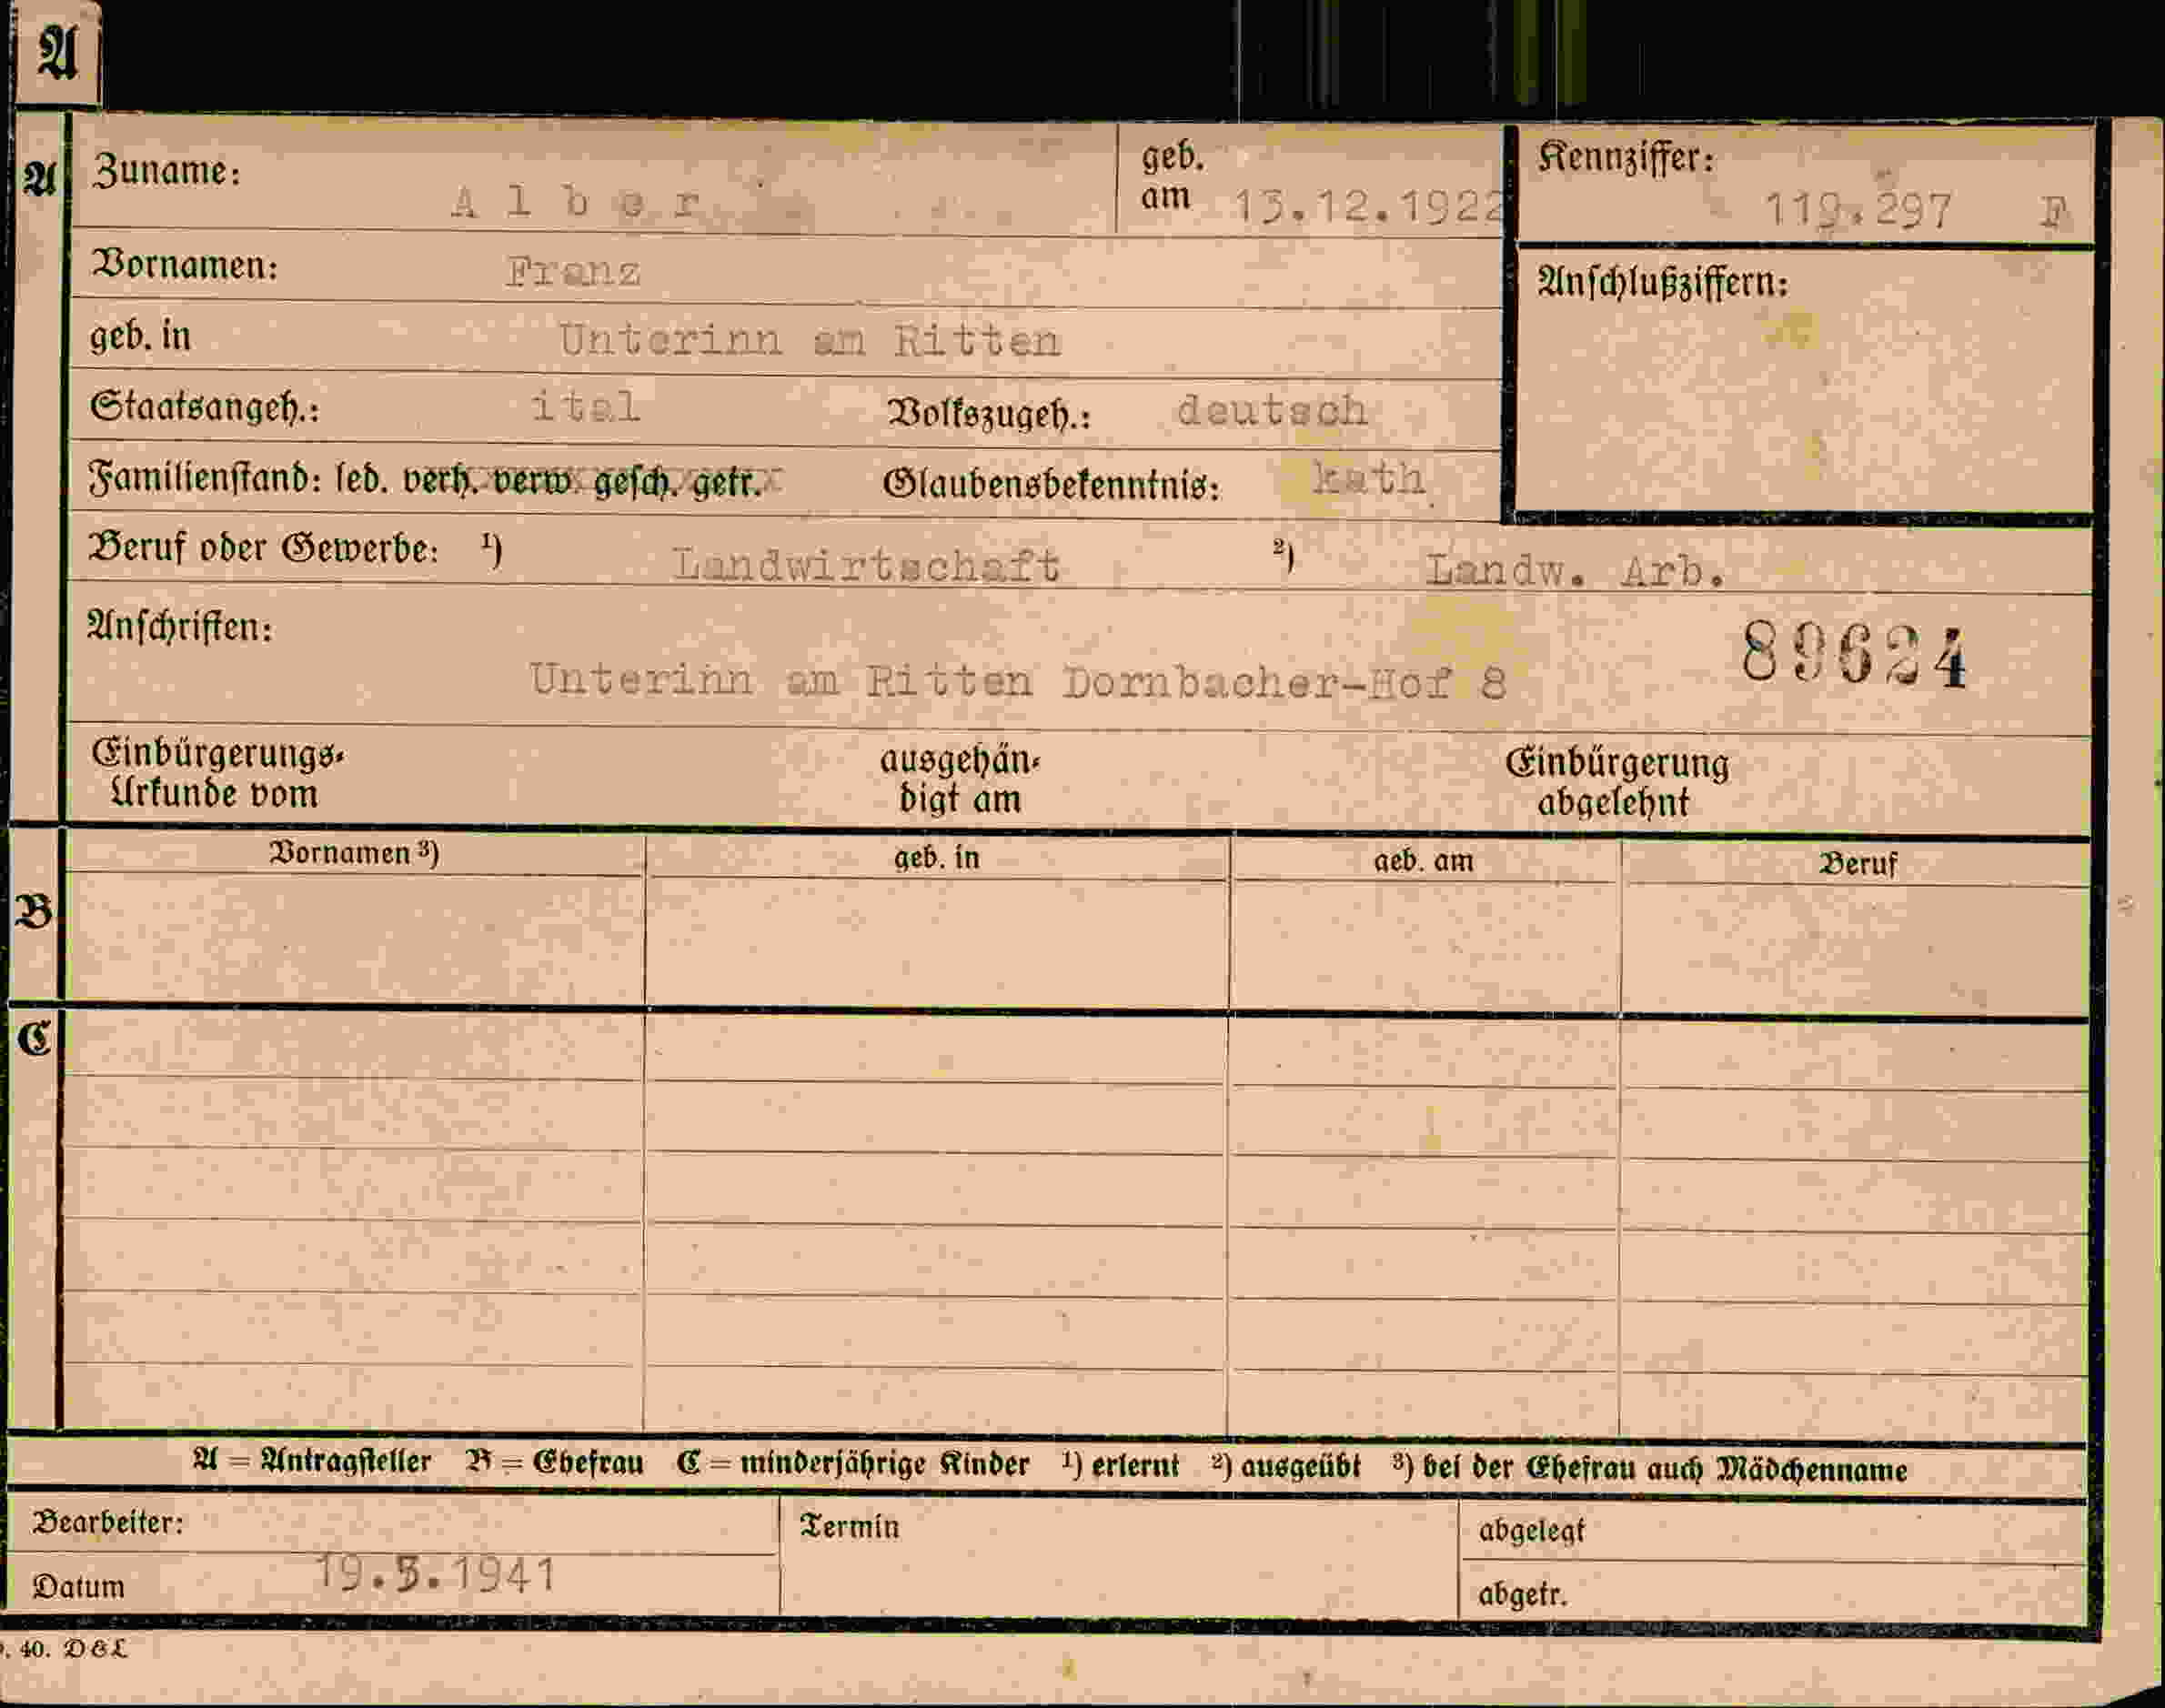 A
A
Zuname: Alber geb. am 13.12.1922 Kennziffer: 119.297 F
Vornamen: Franz
Anschlußziffern:
geb. in Unterinn am Ritten
Staatsangeh.: ital Volkszugeh.: deutsch
Familienstand: led. verh. verw. gesch. getr. Glaubensbekenntnis: kath
Beruf oder Gewerbe: ¹) Landwirtschaft ²) Landw. Arb.
Anschriften: 89624
Unterinn am Ritten Dornbacher-Hof 8
Einbürgerungs- Urkunde vom ausgehän- digt am Einbürgerung abgelehnt
Vornamen ³) geb. in geb. am Beruf
B
C
A = Antragsteller B = Ehefrau C = minderjährige Kinder ¹) erlernt ²) ausgeübt ³) bei der Ehefrau auch Mädchenname
Bearbeiter: Termin abgelegt
Datum 19.5.1941 abgetr.
40. D&L